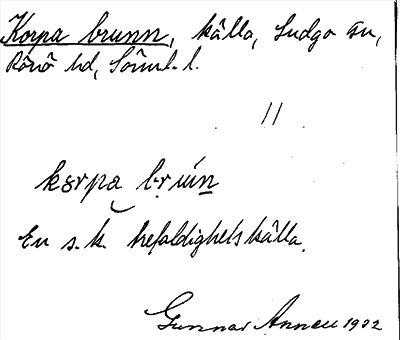 Korpa brunn, källa, Ludgo sn,
Rönö hd, Sörml. l.
||
korpa brun̲
En s.k. trefaldighetskälla.
Gunnar Anneu 1932